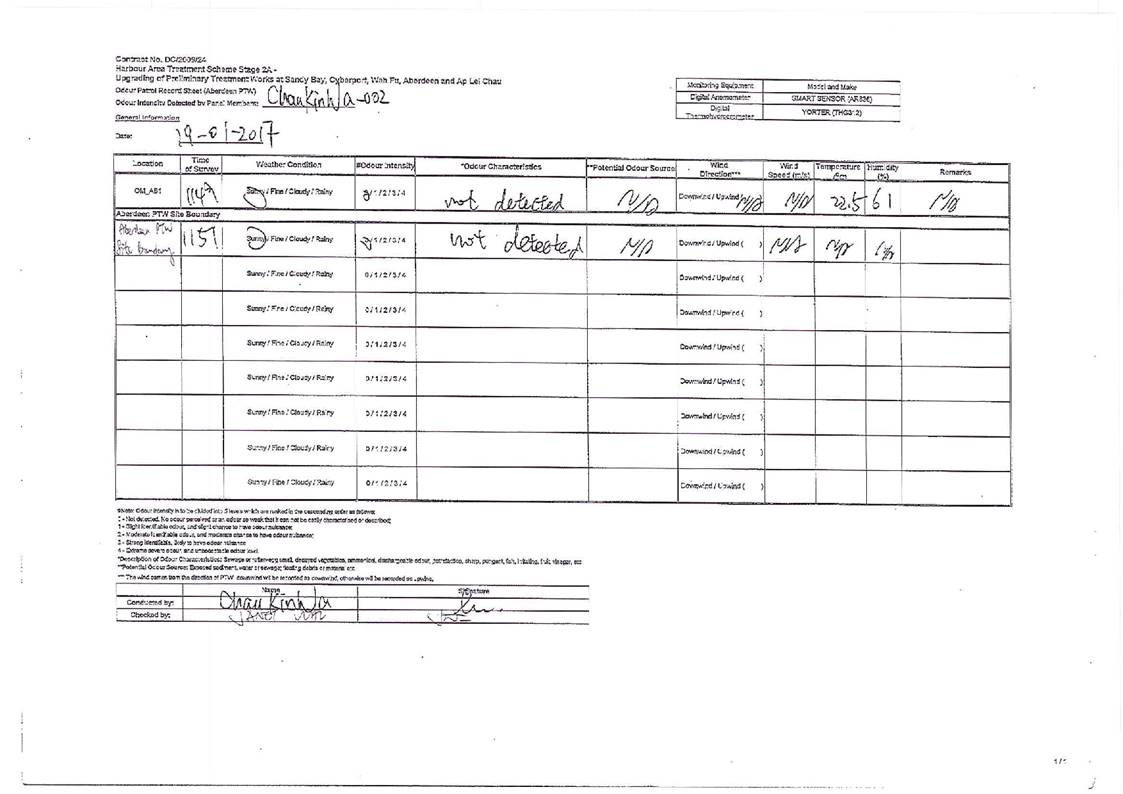 Contract No. DC/2009/24
Harbour Area Treatment Scheme Stage 2A -
Upgrading of Preliminary Treatment Works at Sandy Bay, Cyberport, Wah Fu, Aberdeen and Ap Lei Chau
Odour Patrol Record Sheet (Aberdeen PTW)
Odour Intensity Detected by Panel Members: Chau Kin Wa-002
General Information
Date: 19-01-2017
Monitoring Equipment Model and Make
Digital Anemometer SMART SENSOR (AR836)
Digital Thermohygrometer YORTER (THG312)
Location Time of Survey Weather Condition #Odour Intensity *Odour Characteristics **Potential Odour Source Wind Direction*** Wind Speed (m/s) Temperature Humidity (%) Remarks
OM_AB1 1147 Sunny / Fine / Cloudy / Rainy 0/1/2/3/4 not detected N/A Downwind / Upwind N/A N/A 22.5 61 N/A
Aberdeen PTW Site Boundary
Aberdeen PTW Site boundary 1151 Sunny / Fine / Cloudy / Rainy 0/1/2/3/4 not detected N/A Downwind / Upwind ( ) N/A N/A N/A
Sunny / Fine / Cloudy / Rainy 0/1/2/3/4 Downwind / Upwind ( )
Sunny / Fine / Cloudy / Rainy 0/1/2/3/4 Downwind / Upwind ( )
Sunny / Fine / Cloudy / Rainy 0/1/2/3/4 Downwind / Upwind ( )
Sunny / Fine / Cloudy / Rainy 0/1/2/3/4 Downwind / Upwind ( )
Sunny / Fine / Cloudy / Rainy 0/1/2/3/4 Downwind / Upwind ( )
Sunny / Fine / Cloudy / Rainy 0/1/2/3/4 Downwind / Upwind ( )
Sunny / Fine / Cloudy / Rainy 0/1/2/3/4 Downwind / Upwind ( )
#Note: Odour intensity is to be divided into 5 levels which are ranked in the descending order as follows:
0 - Not detected. No odour perceived or an odour so weak that it can not be easily characterised or described;
1 - Slight identifiable odour, and slight chance to have odour nuisance;
2 - Moderate identifiable odour, and moderate chance to have odour nuisance;
3 - Strong identifiable, likely to have odour nuisance
4 - Extreme severe odour, and unacceptable odour level.
*Description of Odour Characteristics: Sewage or rotten-egg smell, decayed vegetables, ammonical, dischargeable odour, putrefaction, sharp, pungent, fish, irritating, fruit, vinegar, etc
**Potential Odour Source: Exposed sediment, water or sewage; floating debris or material etc
*** The wind comes from the direction of PTW, downwind will be recorded as downwind, otherwise will be recorded as upwind.
Name Signature
Conducted by: Chau Kin Wa
Checked by: JANET
1/1